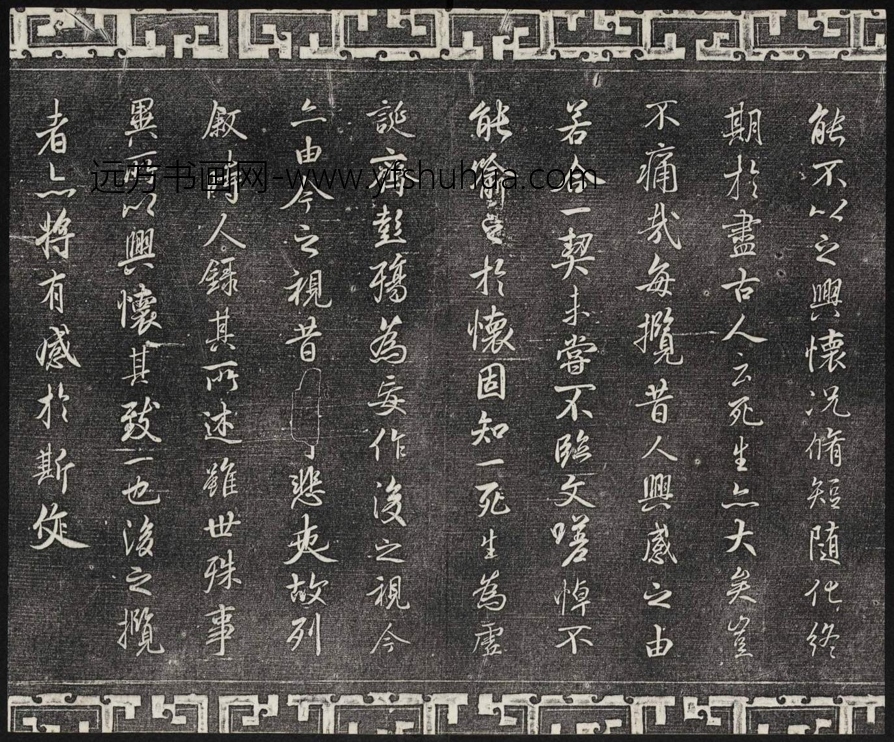 能不以之興懷况脩短随化終
期於盡古人云死生亦大矣豈
不痛哉每攬昔人興感之由
若合一契未嘗不臨文嗟悼不
能喻之於懷固知一死生為虛
誕齊彭殤為妄作後之視今
亦由今之視昔悲夫故列
叙時人録其所述雖世殊事
異所以興懷其致一也後之攬
者亦将有感於斯文
远方书画网-www.yfshuhua.com